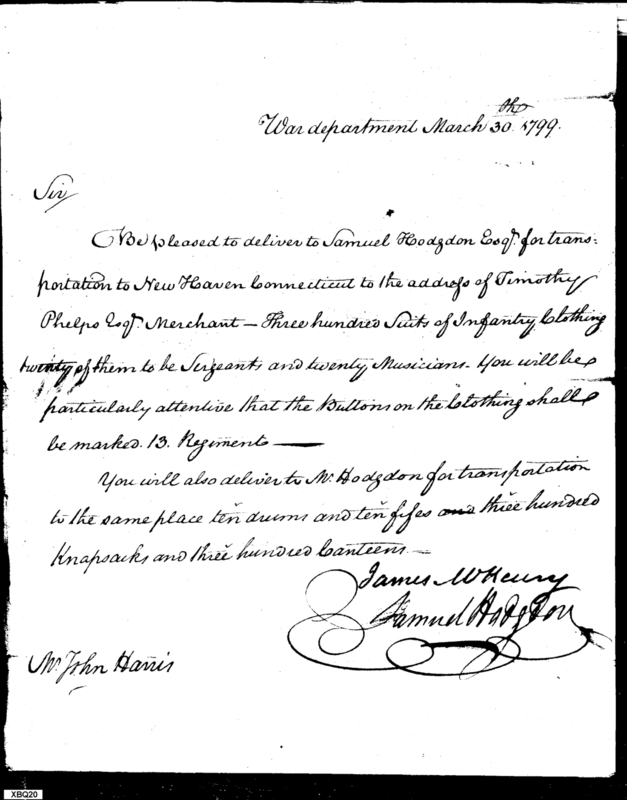 War department March 30th. 1799.
Sir
Be pleased to deliver to Samuel Hodgdon Esqr. for trans=
portation to New Haven Connecticut to the address of Timothy
Phelps Esqr. Merchant — Three hundred Suits of Infantry Clothing
twenty of them to be Sergeants and twenty Musicians. You will be
particularly attentive that the Buttons on the Clothing shall
be marked. 13. Regiment —
You will also deliver to Mr. Hodgdon for transportation
to the same place ten drums and ten fifes and three hundred
Knapsacks and three hundred Canteens —
James McHenry
Samuel Hodgdon
Mr. John Harris
XBQ20